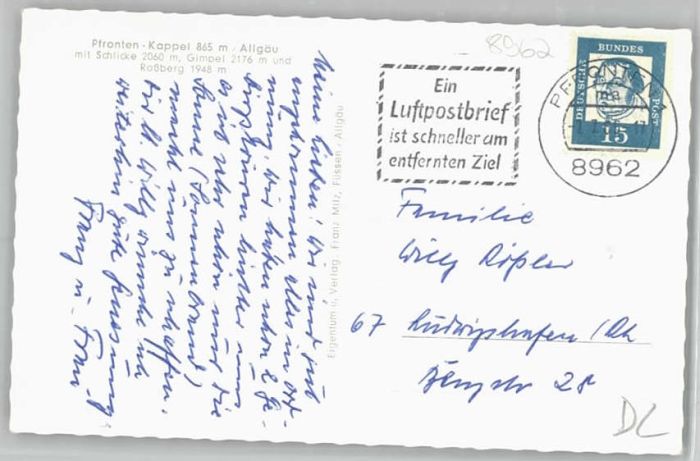 Pfronten - Kappel 865 m / Allgäu
mit Schlicke 2060 m, Gimpel 2176 m und
Roßberg 1948 m
8962
Ein
Luftpostbrief
ist schneller am
entfernten Ziel
PFRONTEN
8962
DEUTSCHE
BUNDES
POST
15
Meine Lieben! Wir sind gut
angekommen alles in Ord-
nung. Wir haben schon 2 Ge-
birgstouren hinter uns
es ist sehr schön nur die
Sonne (Sonnenbrand)
macht uns zu schaffen.
Willy wünsche ich
weiterhin gute Genesung
Franz u. Frau
Eigentum u. Verlag Franz Milz, Füssen / Allgäu
Familie
Willy Rößler
67 Ludwigshafen / Rh
str 28
DL